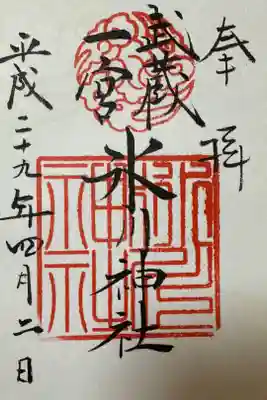 奉拝
武蔵
一宮
氷川神社
平成二十九年四月二日